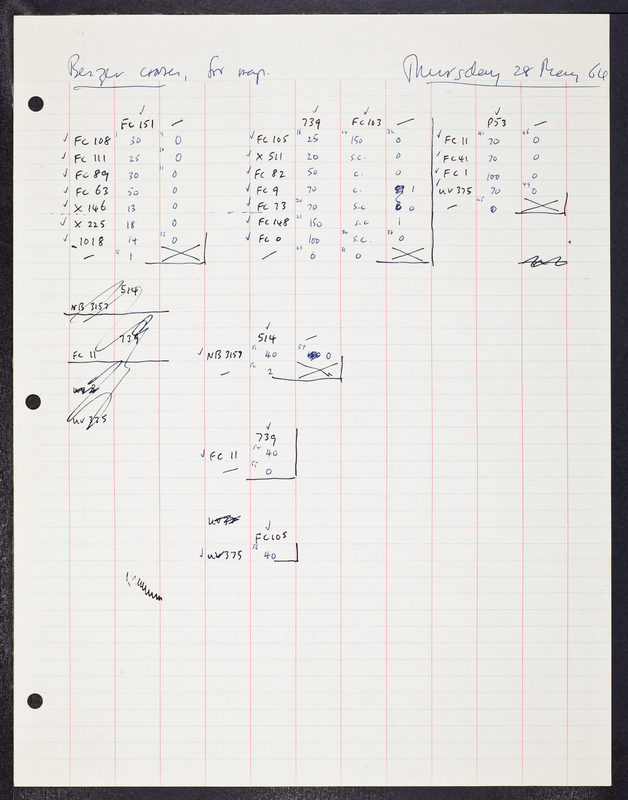 Benzer crosses, for map. Thursday 28 May 64
FC 151 — 739 FC 103 — P53 —
FC 108 30 0 FC 105 25 150 0 FC 11 70 0
FC 111 25 0 X 511 20 s.c. 0 FC 41 70 0
FC 89 30 0 FC 82 50 c. 0 FC 1 100 0
FC 63 50 0 FC 9 70 c. 1 UV 375 70 0
X 146 13 0 FC 73 70 s.c 0 — 0
X 225 18 0 FC 148 150 s.c 1
1018 14 0 FC 0 100 s.c. 0
— 1 — 0 0
514
NB 3157
739
FC 11
UV 375
514 —
NB 3157 40 0
— 2
739
FC 11 40
— 0
FC 105
UV 375 40